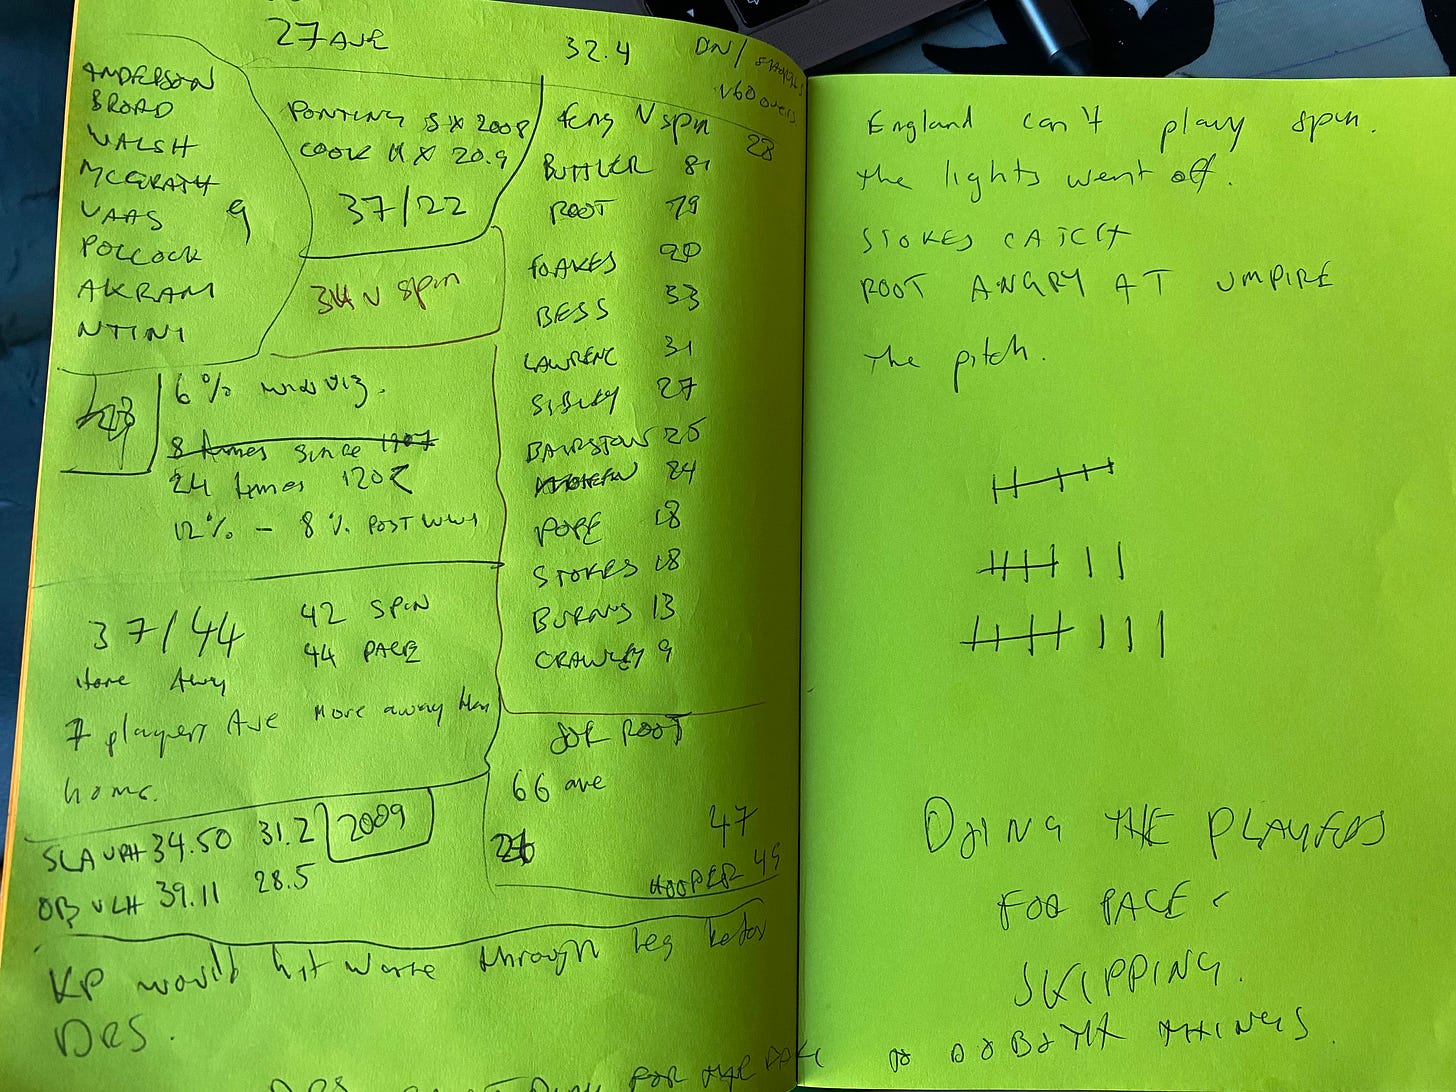 27 AVE
32.4
DN/
v60 overs
ANDERSON
BROAD
WALSH
MCGRATH
VAAS
POLLOCK
AKRAM
NTINI
9
PONTING
COOK 11 X 20.9
37/22
34 v spin
Eng V spin 28
BUTTLER 81
ROOT 79
FOAKES
BESS 33
LAWRENC 31
SIBLEY 27
BAIRSTOW 25
24
POPE 18
STOKES 18
BURNS 13
CRAWLEY 9
6%
8 times since 1907
24 times 120
12% - 8% POST WW1
37/44
Home Away
42 SPIN
44 PACE
7 players Ave More away than
home.
JOE ROOT
66 ave
47
HOOPER 49
SLA v RH 34.50 31.2 2009
OB v LH 39.11 28.5
KP would hit worse through leg before
DRS.
England can't play spin.
the lights went off.
STOKES CATCH
ROOT ANGRY AT UMPIRE
the pitch.
DOING THE PLAYERS
FOR PACE
SKIPPING.
THINGS.